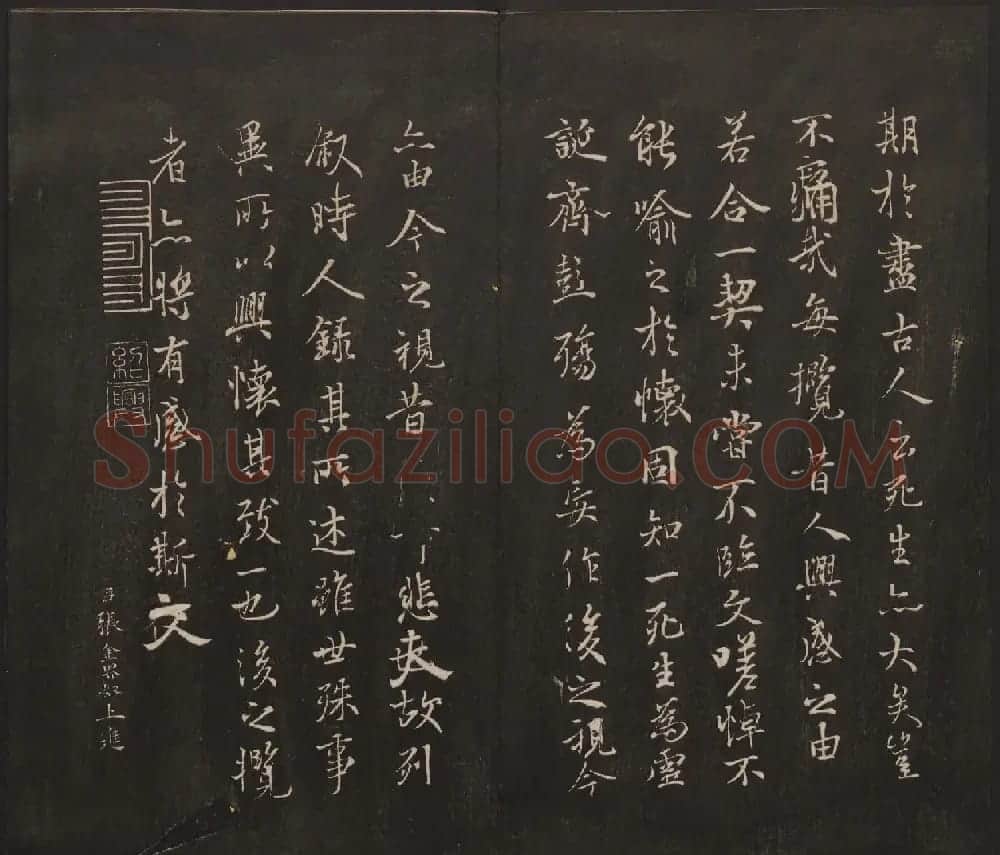 期於盡古人云死生亦大矣豈
不痛哉每攬昔人興感之由
若合一契未嘗不臨文嗟悼不
能喻之於懷固知一死生為虛
誕齊彭殤為妄作後之視今
亦由今之視昔悲夫故列
叙時人錄其所述雖世殊事
異所以興懷其致一也後之攬
者亦將有感於斯文
紹興
張金界奴上進
Shufaziliao.COM